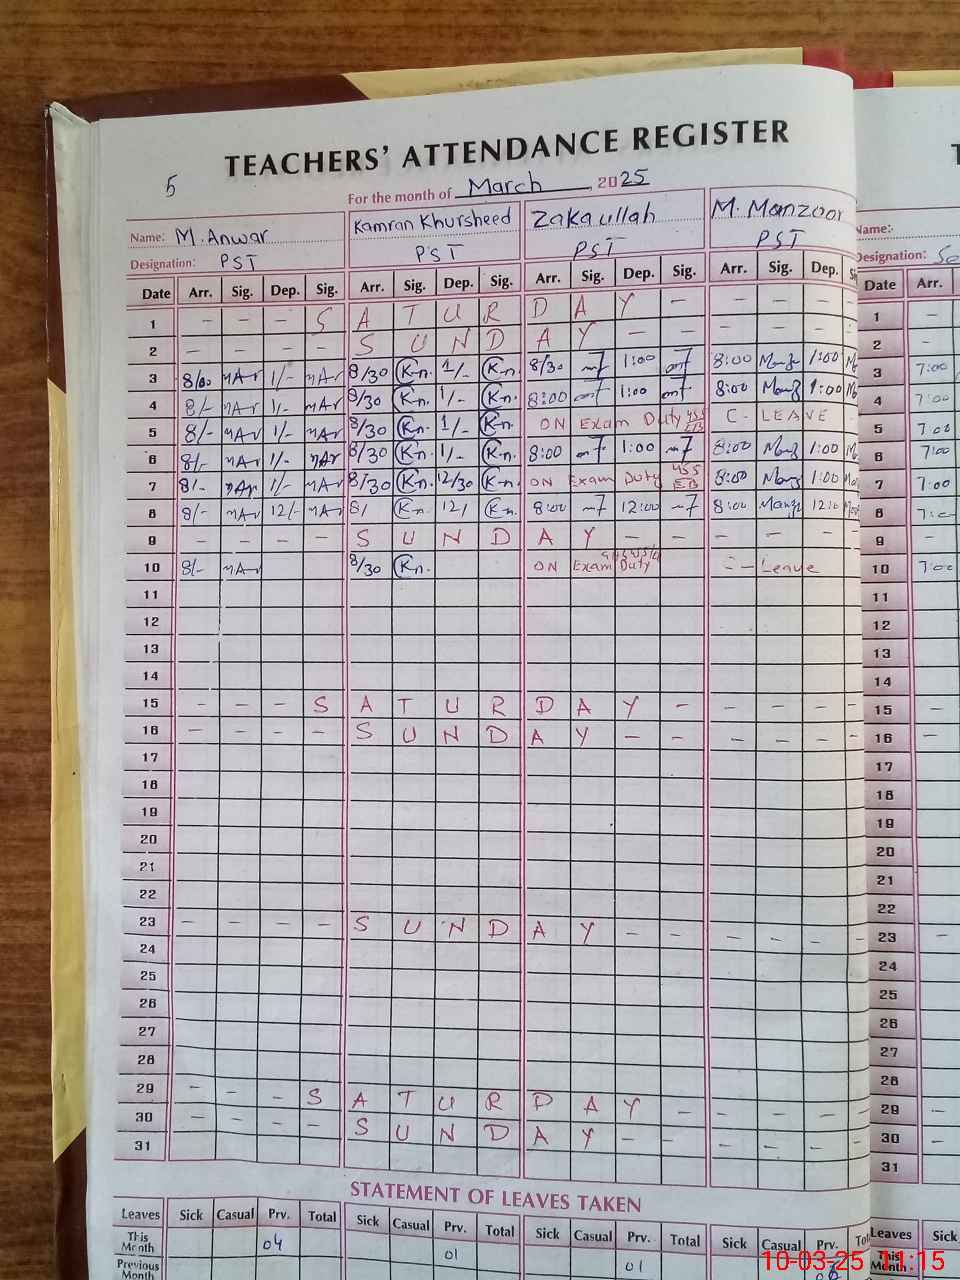 TEACHERS' ATTENDANCE REGISTER
5
For the month of March, 2025
Name: M. Anwar Kamran Khursheed Zakaullah M. Manzoor Name:
Designation: PST PST PST PST Designation:
Date Arr. Sig. Dep. Sig. Arr. Sig. Dep. Sig. Arr. Sig. Dep. Sig. Arr. Sig. Dep. Date Arr.
1 - - - S A T U R D A Y - - - - 1 -
2 - - - - S U N D A Y - - - - - 2 -
3 8/00 1/- 8/30 Kn. 1/- Kn. 8/30 1:00 8:00 1:00 3 7:00
4 8/- 1/- 8/30 Kn. 1/- Kn. 8:00 1:00 8:00 1:00 4 7:00
5 8/- 1/- 8/30 Kn. 1/- Kn. ON Exam Duty C- LEAVE 5 7:00
6 8/- 1/- 8/30 Kn. 1/- Kn. 8:00 1:00 8:00 1:00 6 7:00
7 8/- 1/- 8/30 Kn. 12/30 Kn. ON Exam Duty 8:00 1:00 7 7:00
8 8/- 12/- 8/ Kn. 12/ Kn. 8:00 12:00 8:00 12:0 8 7:00
9 - - - - S U N D A Y - - - - - 9 -
10 8/- 8/30 Kn. ON Exam Duty Leave 10 7:00
11 11
12 12
13 13
14 14
15 - - - S A T U R D A Y - - - - 15 -
16 - - - - S U N D A Y - - - - - 16 -
17 17
18 18
19 19
20 20
21 21
22 22
23 - - - - S U N D A Y - - - - - 23 -
24 24
25 25
26 26
27 27
28 28
29 - - - S A T U R D A Y - - - - 29 -
30 - - - - S U N D A Y - - - - - 30 -
31 31
STATEMENT OF LEAVES TAKEN
Leaves Sick Casual Prv. Total Sick Casual Prv. Total Sick Casual Prv. Total Sick Casual Prv. Leaves Sick
This Month 04 01 01 This Month
Previous Month
10-03-25 11:15